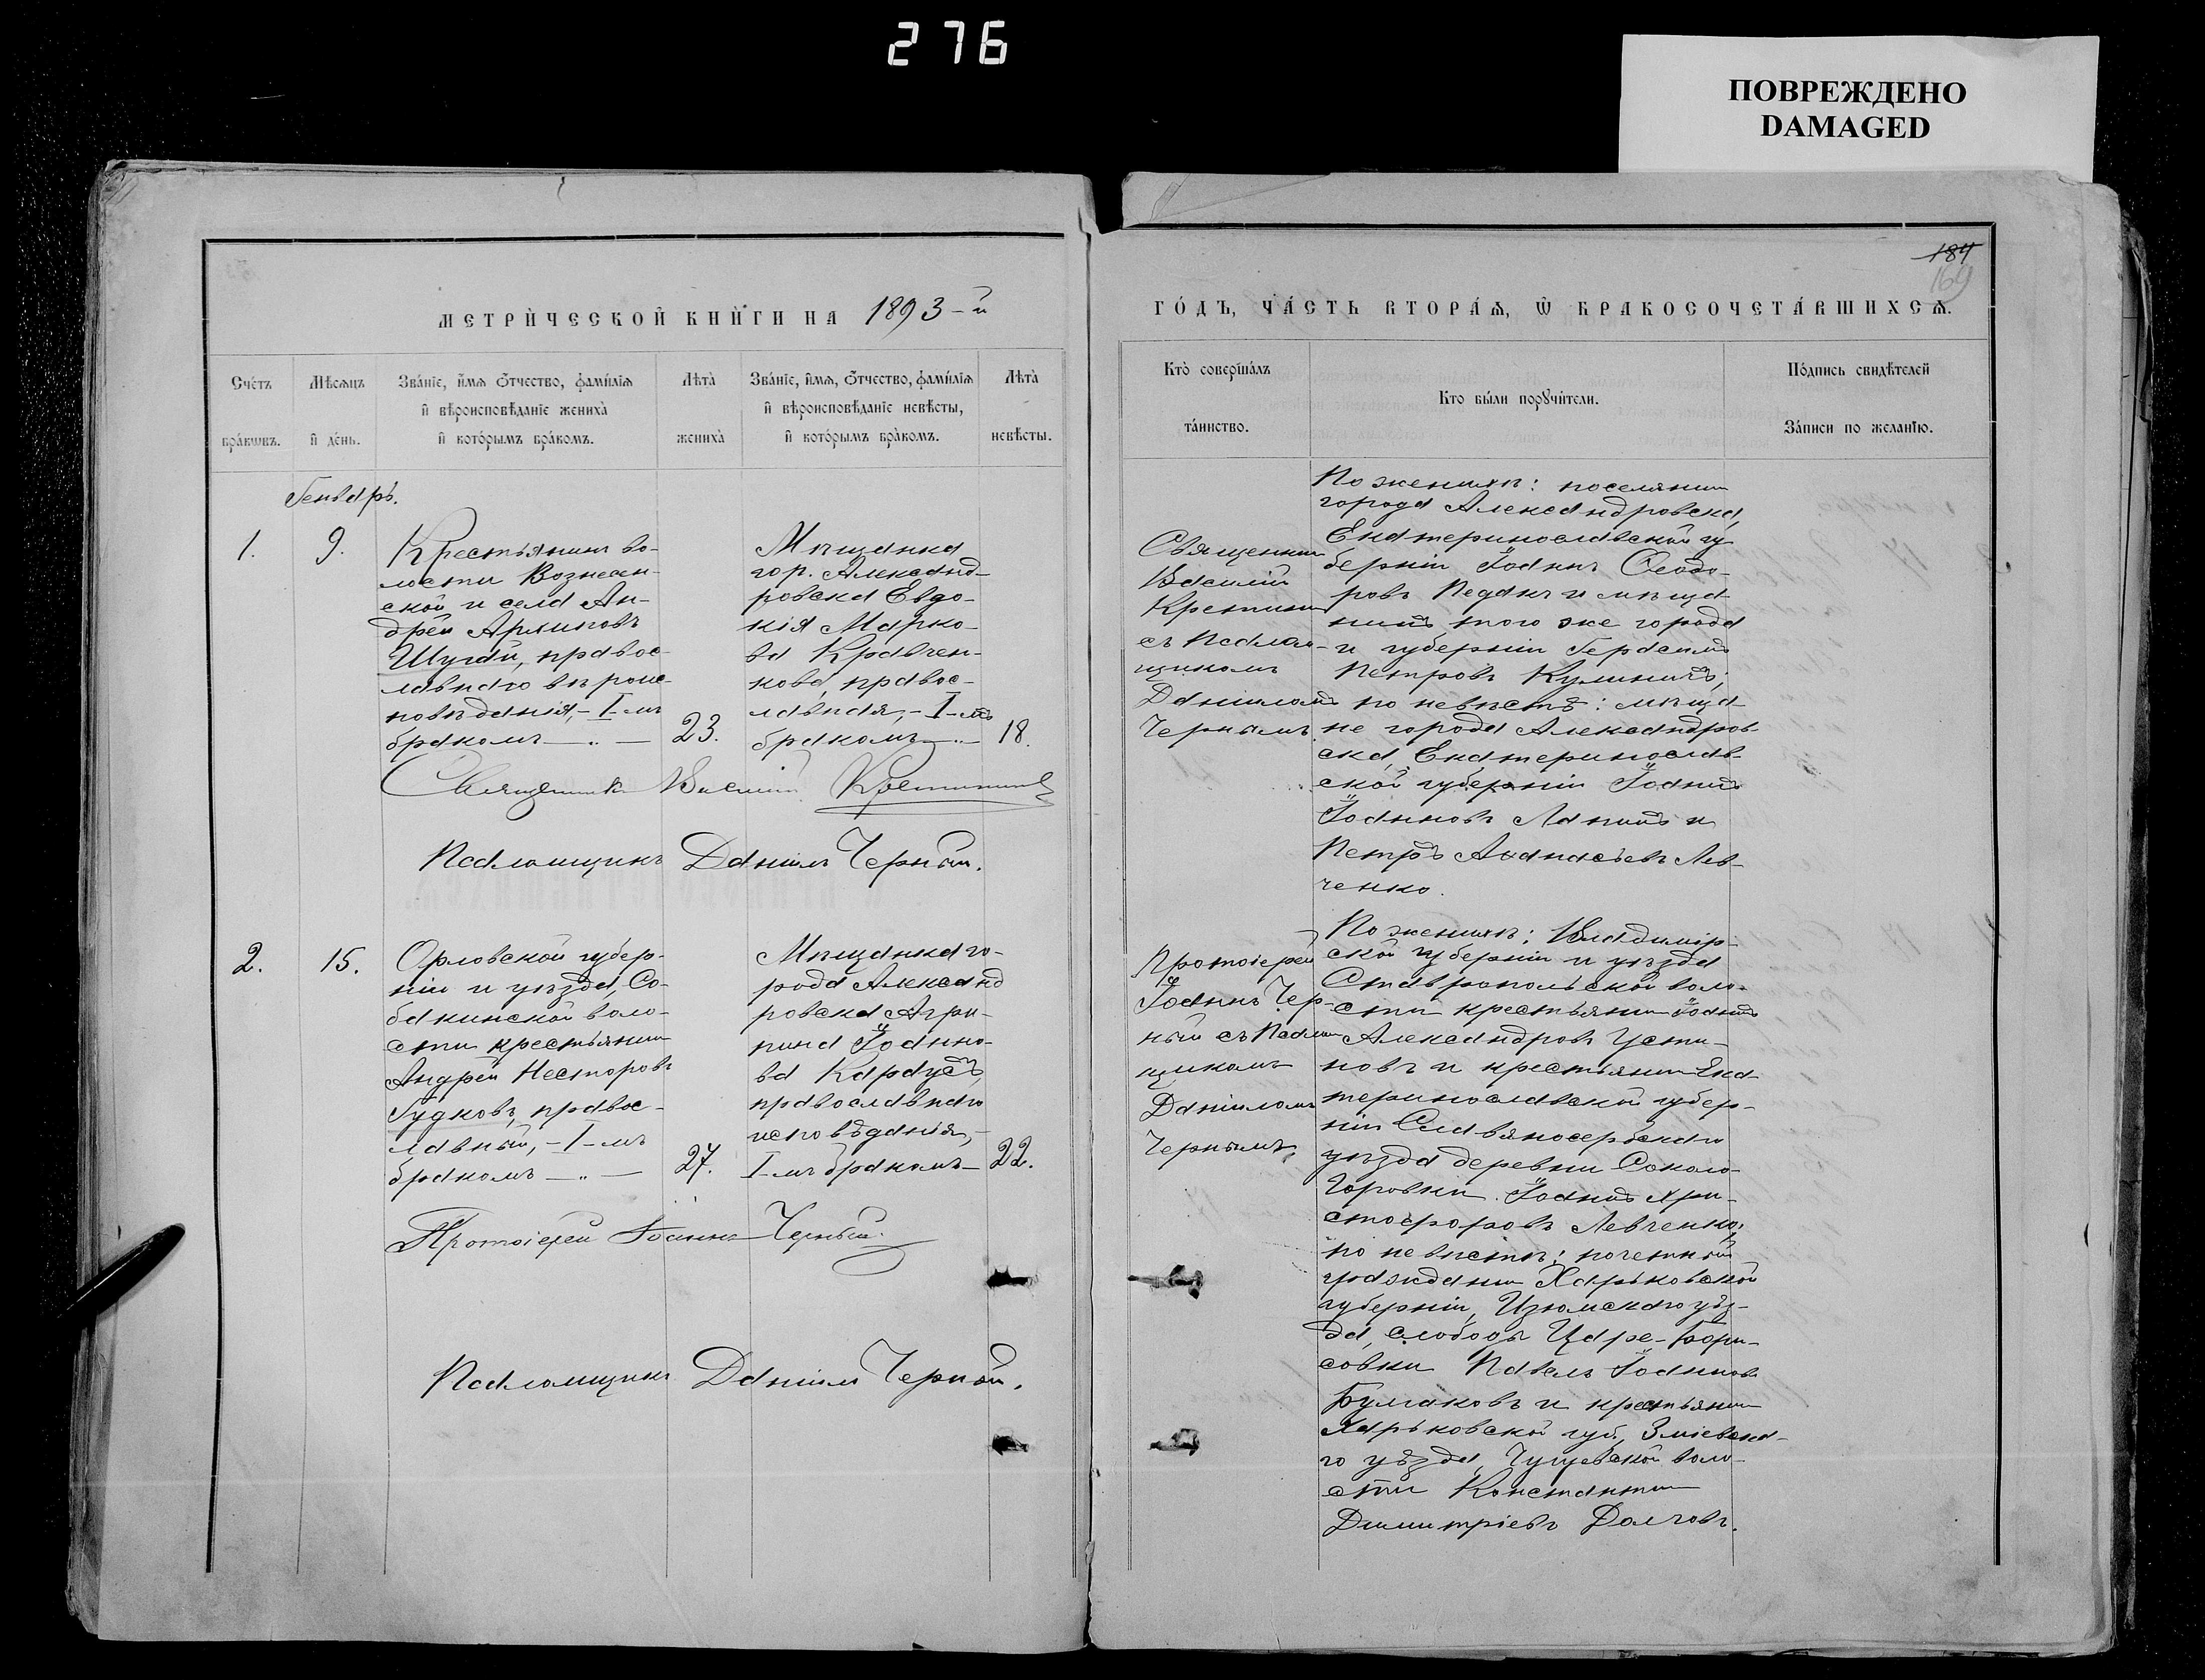 276
ПОВРЕЖДЕНО
DAMAGED
184
169
МЕТРИ́ЧЕСКОЙ КНИ́ГИ НА 1893-й
ГО́ДЪ, ЧА́СТЬ ВТОРА́Ѧ, Ѿ БРАКОСОЧЕТА́ВШИХСѦ.
Сче́тъ бра́кѡвъ.
Мѣ́сѧцъ и҆ де́нь.
Зва́нїе, и҆́мѧ ѻ҆́тчество, фами́лїѧ
и҆ вѣроисповѣ́данїе жениха̀
и҆ кото́рымъ бра́комъ.
Лѣта̀ жениха̀
Зва́нїе, и҆́мѧ, ѻ҆́тчество, фами́лїѧ
и҆ вѣроисповѣ́данїе невѣ́сты,
и҆ кото́рымъ бра́комъ.
Лѣта̀ невѣ́сты.
Кто̀ соверша́лъ
та́инство.
Кто бы́ли порꙋчи́тели.
По́дпись свидѣ́телей
За́писи по жела́нїю.
Генварь.
1.
9.
Крестьянинъ во-
лости Вознесен-
ской и села Ан-
дрей Архиповъ
Шугай, правос-
лавнаго вѣроис-
повѣданія,-I-мъ
бракомъ — „ —
23.
Мѣщанка
гор. Александ-
ровска Евдо-
кія Марко-
ва Кравчен-
кова, правос-
лавная,-I-мъ
бракомъ — „ —
18.
Священникъ Василій Крестининъ
Псаломщикъ Даніилъ Черный.
Священникъ
Василій
Крестининъ
съ Псалом-
щикомъ
Данииломъ
Чернымъ.
По женихѣ: поселянинъ
города Александровска,
Екатеринославской гу-
берніи Іоаннъ Ѳеодо-
ровъ Педанъ и мѣща-
нинъ того же города
и губерніи Герасимъ
Петровъ Кулиничъ;
по невѣстѣ: мѣща-
не города Александров-
ска, Екатеринослав-
ской губерніи Іоаннъ
Іоанновъ Лапинъ и
Петръ Аѳанасьевъ Лев-
ченко.
2.
15.
Орловской губер-
ніи и уѣзда, Со-
бакинской воло-
сти крестьянинъ
Андрей Несторовъ
Гудковъ, правос-
лавный,-I-мъ
бракомъ — „ —
27.
Мѣщанка го-
рода Александ
ровска Агри-
пина Іоанно-
ва Караусъ,
православнаго
исповѣданія,-
I-мъ бракомъ —
22.
Протоіерей Іоаннъ Черный.
Псаломщикъ Даніилъ Черный.
Протоіерей
Іоаннъ Чер-
ный съ Псалом
щикомъ
Данииломъ
Чернымъ.
По женихѣ: Владимір-
ской губерніи и уѣзда
Ставропольской воло-
сти крестьянинъ Іоаннъ
Александровъ Усти-
новъ и крестьянинъ Ека-
теринославской губер-
ніи Славяносербскаго
уѣзда деревни Соколо-
горовки Іоаннъ Хри-
стофоровъ Левченко;
по невѣстѣ: почетный
гражданинъ Харьковской
губерніи, Изюмскаго уѣз-
да, слободы Царе-Бори-
совки Павелъ Іоанновъ
Булгаковъ и крестьянинъ
Харьковской губ., Зміевска-
го уѣзда, Чугуевской воло-
сти Константинъ
Димитріевъ Долговъ.